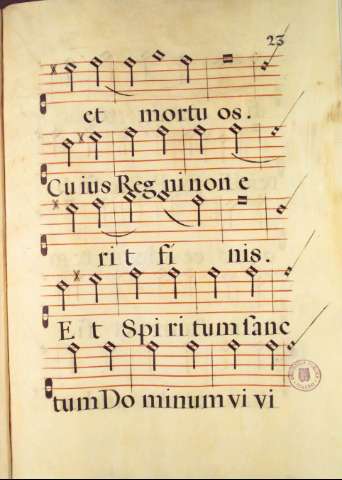 23
et mortu os.
Cu ius Reg ni non e
ri t fi nis.
E t Spi ri tum ſanc
tum Do minum vi vi